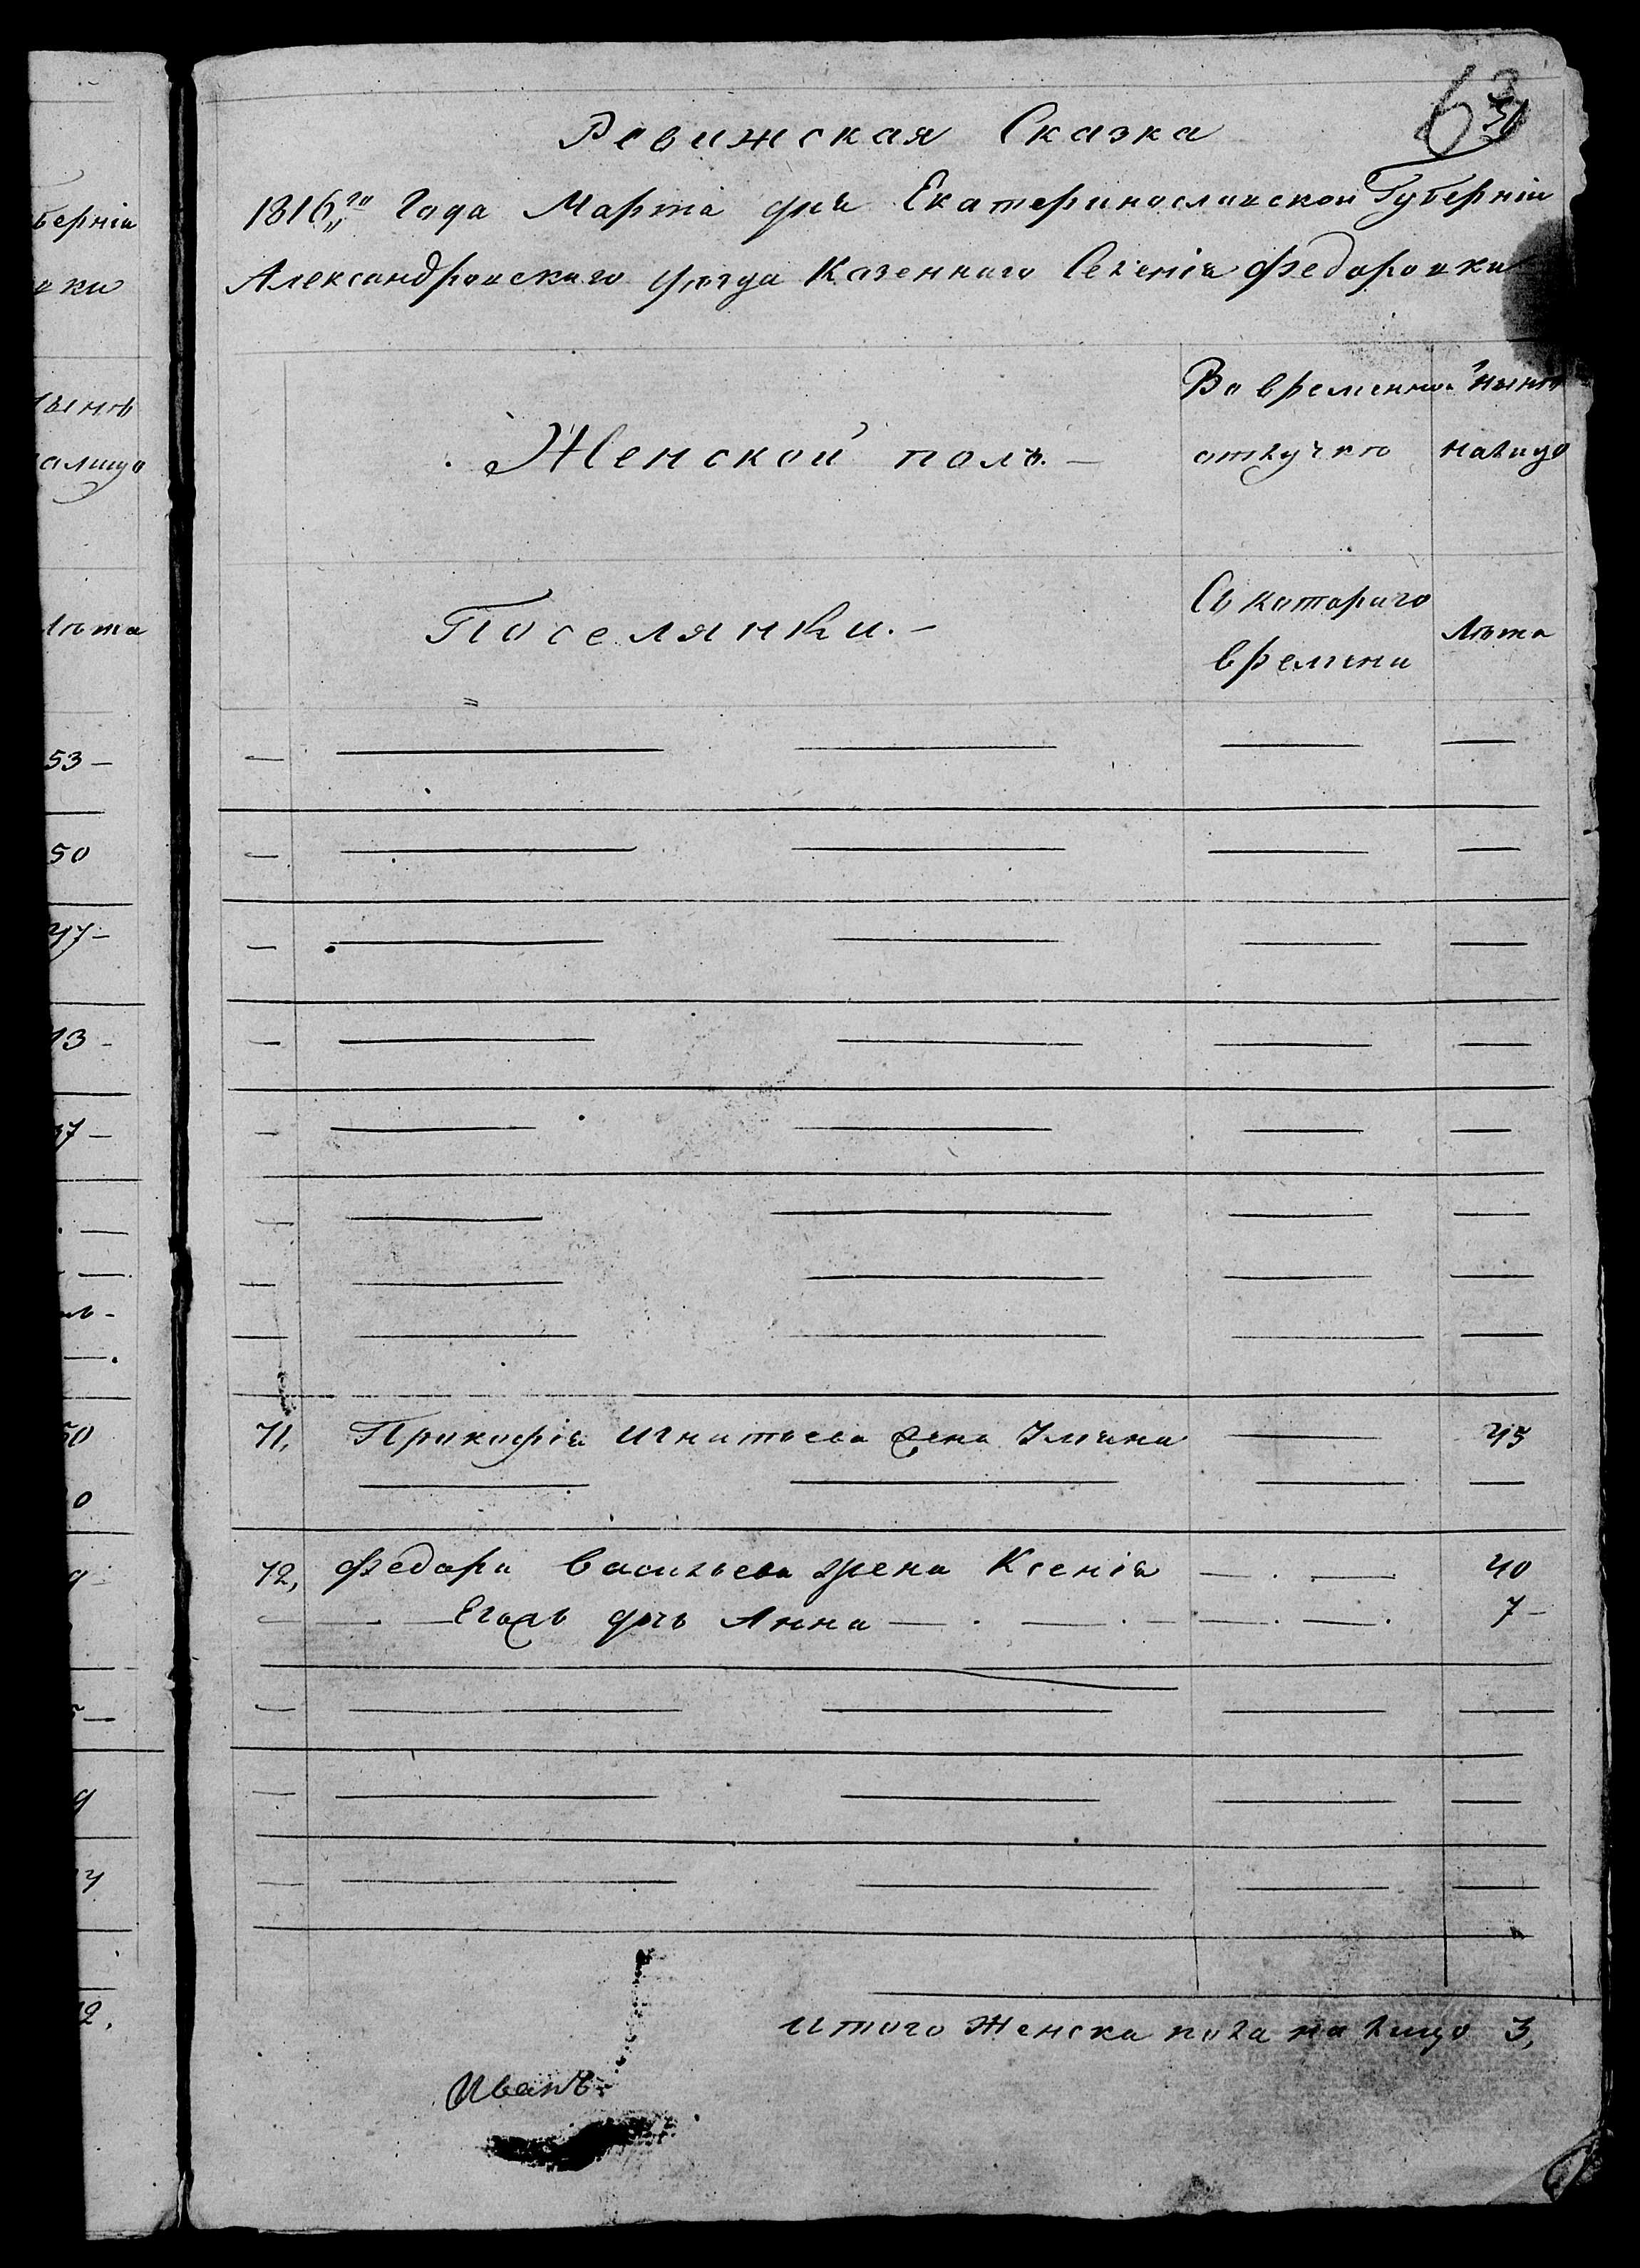 63
Ревижская Сказка
1816го Года Марта дня Екатеринославской Губерніи
Александровскаго уѣзда Казеннаго Селенія Федоровки
Женской полъ.
Во временной
отлучкѣ
нынѣ
налицо
Поселянки.
Съ котораго
времени
Лѣта
71, Прокофія Игнатьева жена Улияна 45
72, Федора Васильева жена Ксенія 40
Егожъ дчь Анна 7
Итого женска пола на лицо 3,
Иванъ
берніи
вки
нынѣ
алицо
лѣта
53
50
47
13
37
50
0
9
9
4
12,